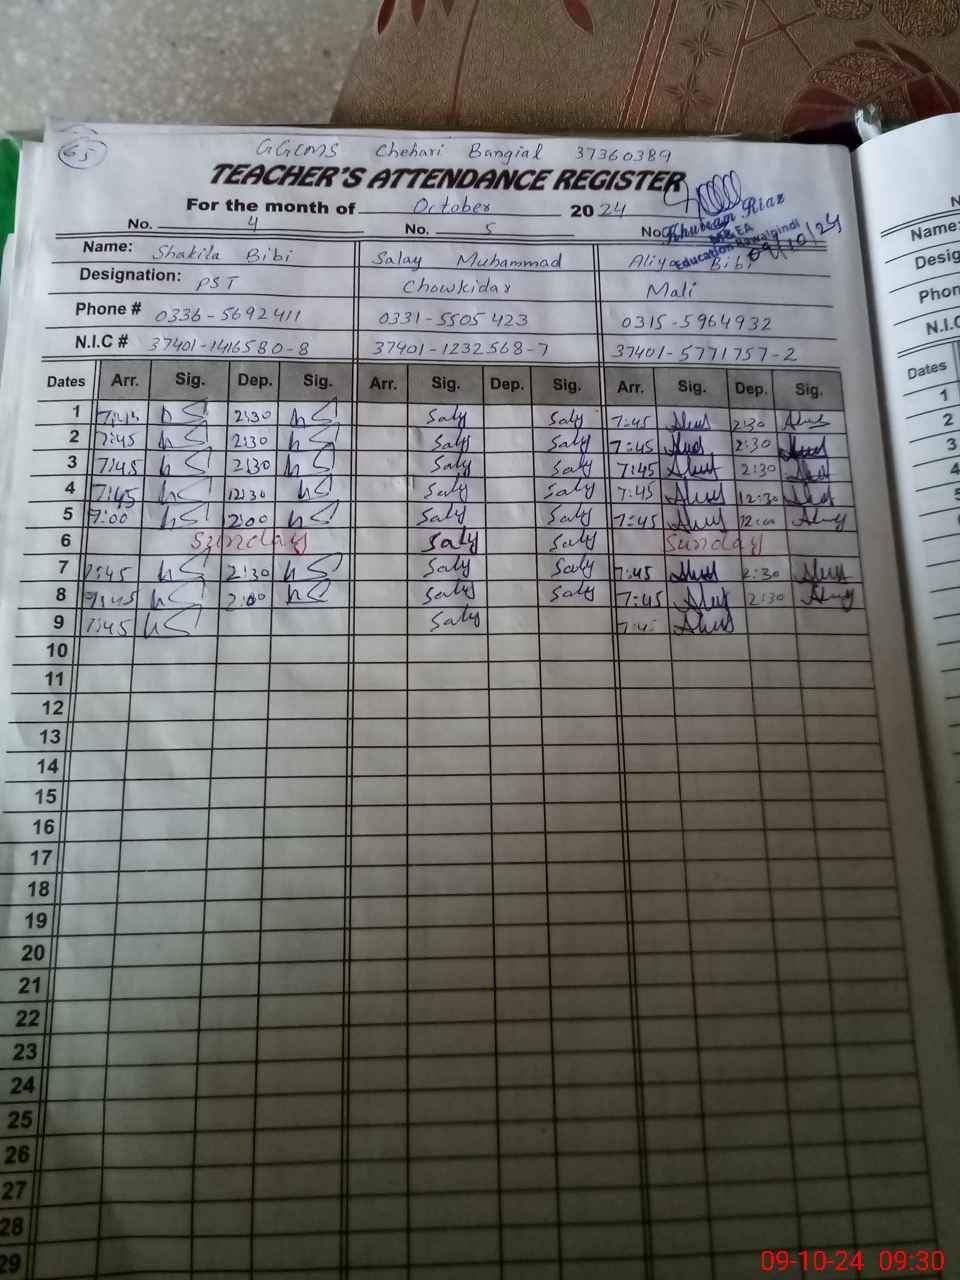 65
GGCMS Chehari Bangial 37360389
TEACHER'S ATTENDANCE REGISTER
For the month of October 2024
No. 4 No. 5 No.
Khubran Riaz
MEA
Education Rawalpindi
09/10/24
Name: Shakila Bibi Salay Muhammad Aliya Bibi
Designation: PST Chowkidar Mali
Phone # 0336-5692411 0331-5505423 0315-5964932
N.I.C # 37401-1416580-8 37401-1232568-7 37401-5771757-2
Dates Arr. Sig. Dep. Sig. Arr. Sig. Dep. Sig. Arr. Sig. Dep. Sig.
1 7:45 2:30 Saly Saly 7:45 2:30
2 7:45 2:30 Saly Saly 7:45 2:30
3 7:45 2:30 Saly Saly 7:45 2:30
4 7:45 12:30 Saly Saly 7:45 12:30
5 7:00 2:00 Saly Saly 7:45 12:00
6 Sunday Saly Saly Sunday
7 7:45 2:30 Saly Saly 7:45 2:30
8 7:45 2:00 Saly Saly 7:45 2:30
9 7:45 Saly 7:45
10
11
12
13
14
15
16
17
18
19
20
21
22
23
24
25
26
27
28
29
Name:
Desig
Phon
N.I.C
Dates
1
2
3
4
09-10-24 09:30